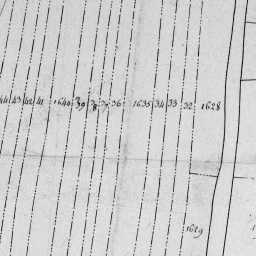 44 43 42 41 1640 39 38 37 36 1635 34 33 32 1628
1629